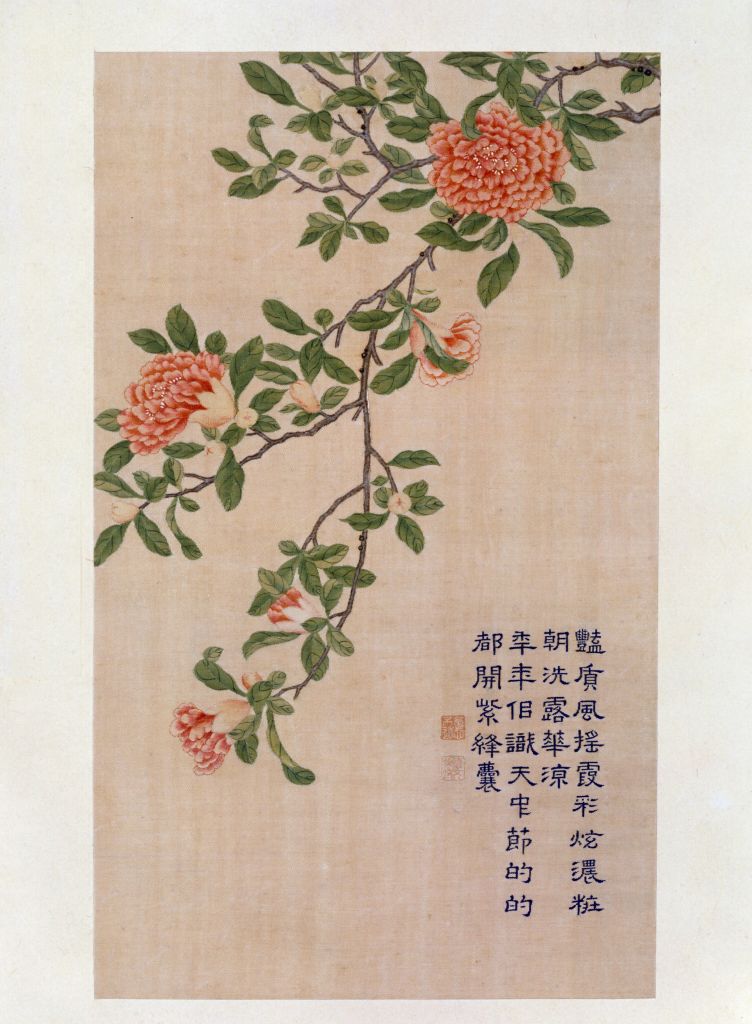 豔貭風搖霞彩炫濃粧
朝洗露華涼
年年佀識天中節的的
都開紫絳囊